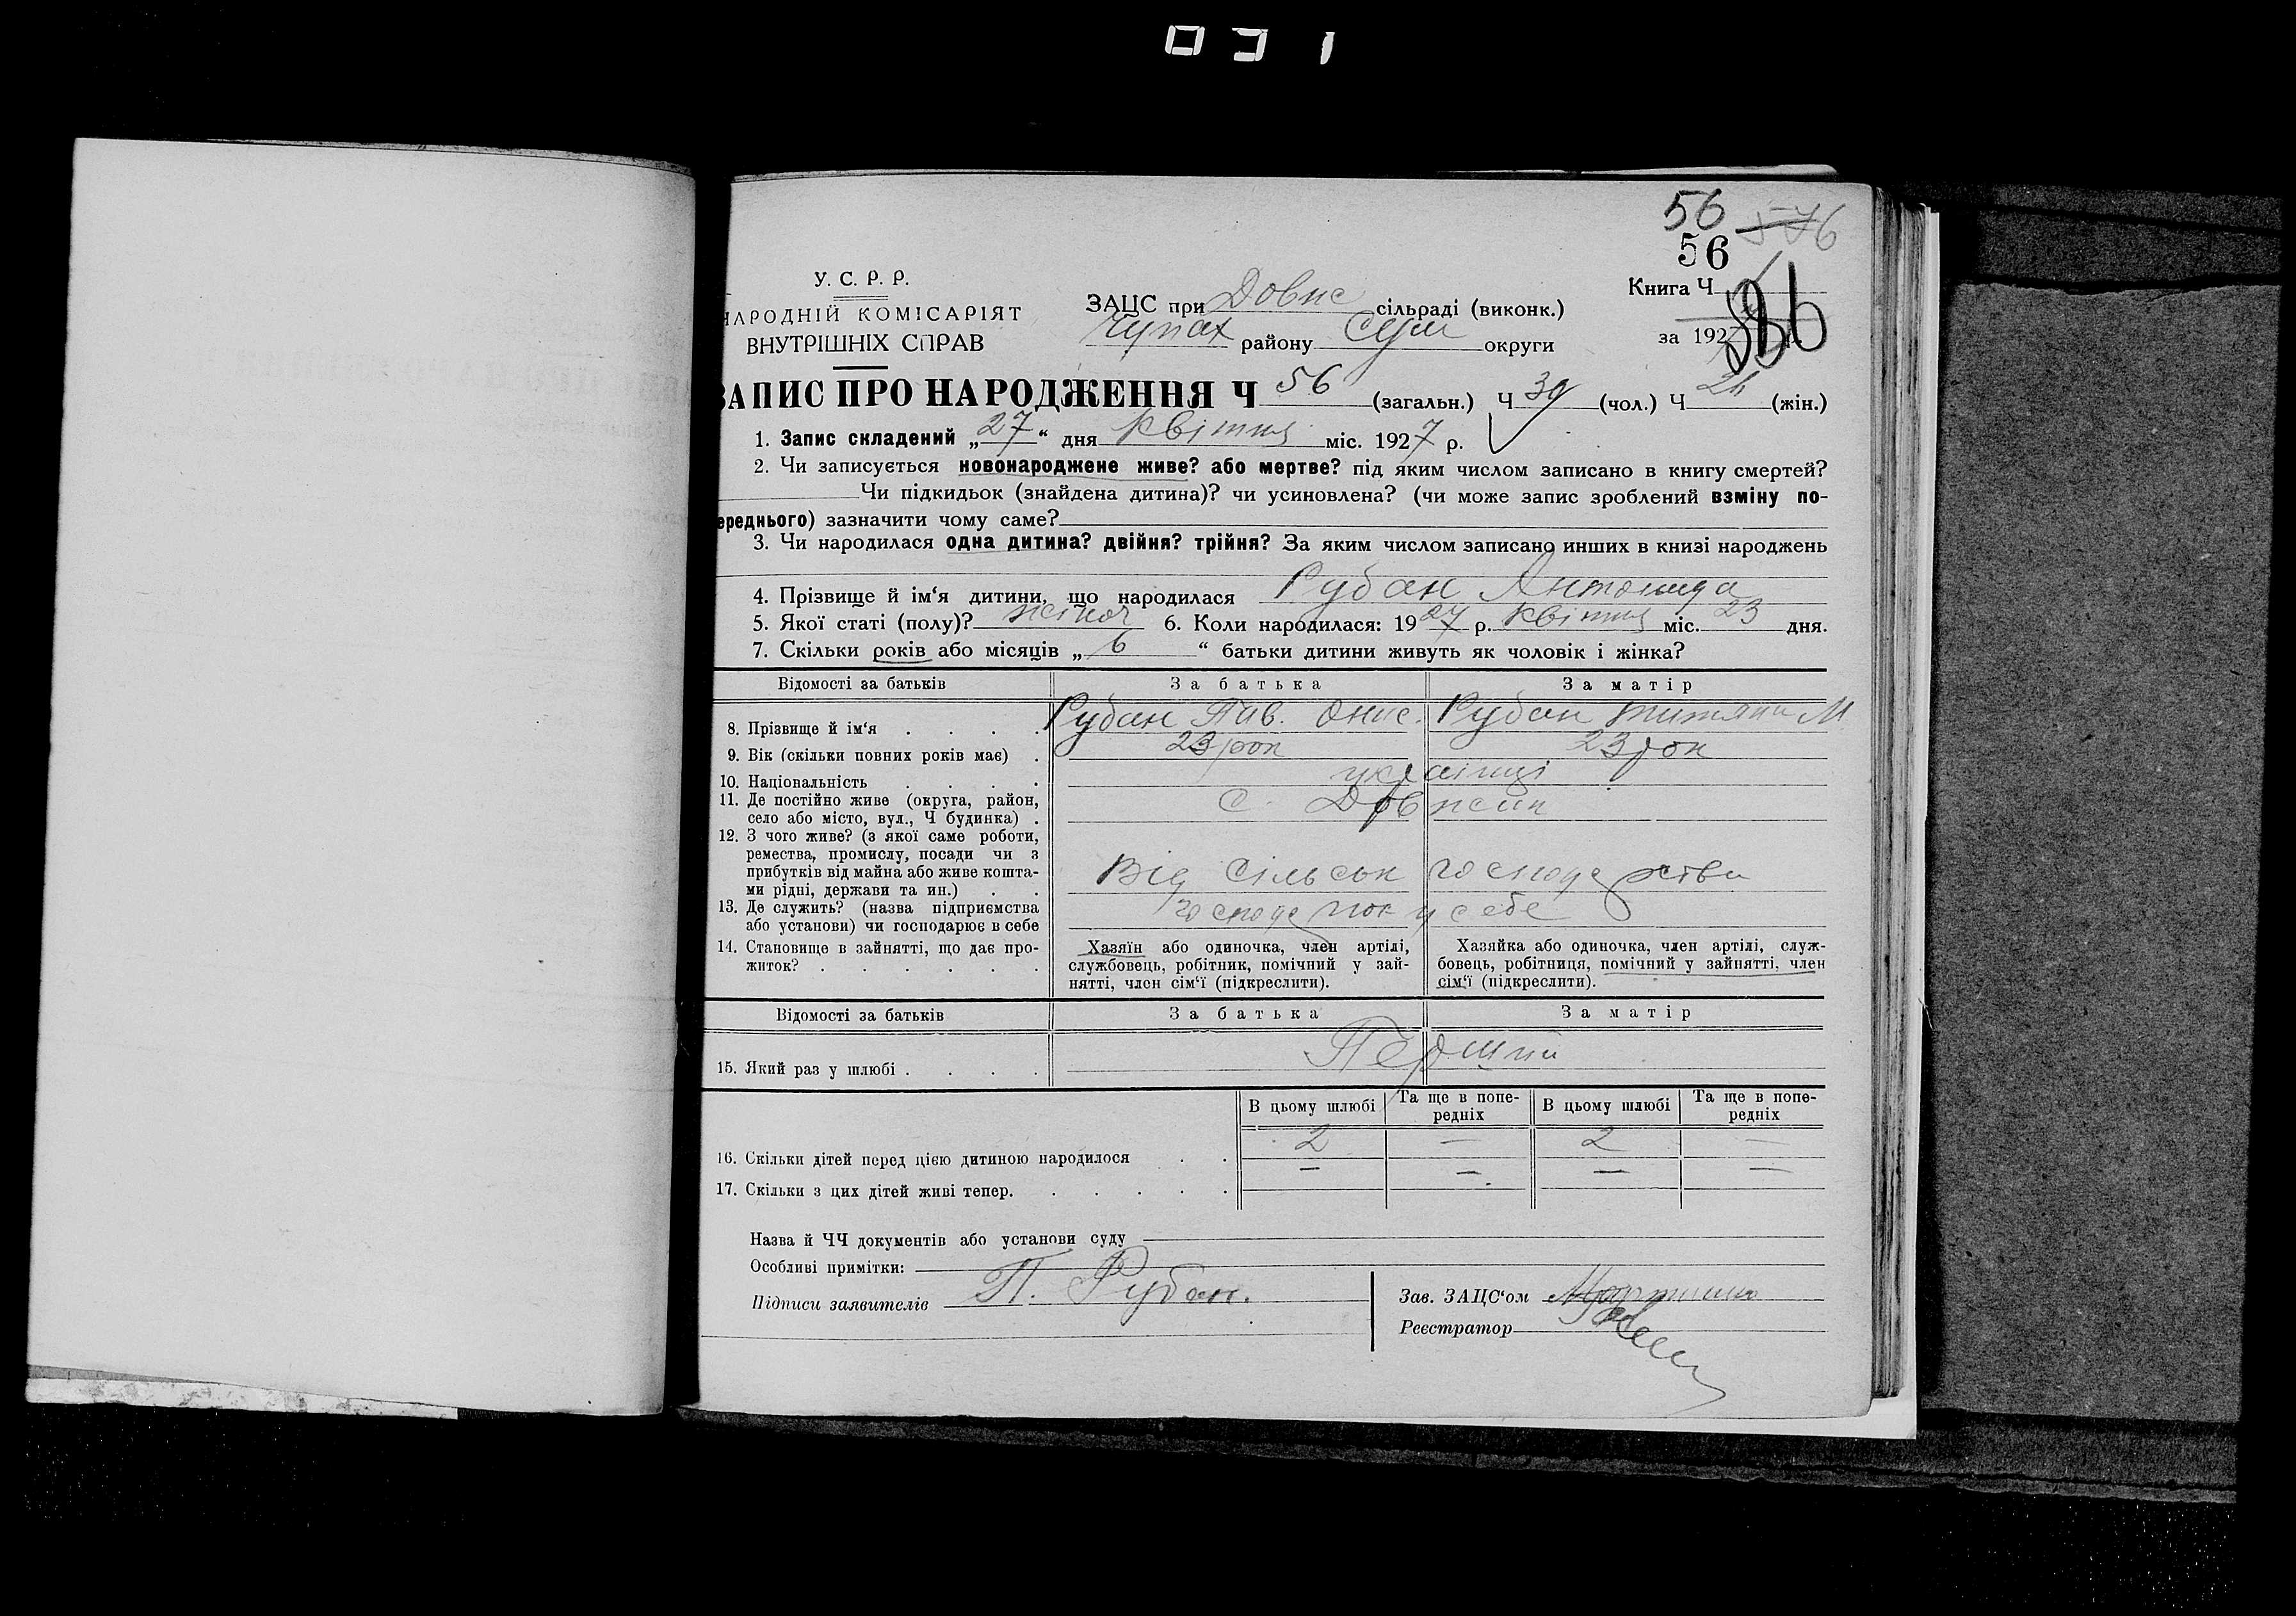 031
56
56
У. С. Р. Р.
НАРОДНІЙ КОМІСАРІЯТ
ВНУТРІШНІХ СПРАВ
ЗАЦС при Довж сільраді (виконк.)
Чупах району Сум округи
Книга Ч
за 192
ЗАПИС ПРО НАРОДЖЕННЯ Ч 56 (загальн.) Ч (чол.) Ч (жін.)
1. Запис складений „27“ дня квітня міс. 1927 р.
2. Чи записується новонароджене живе? або мертве? під яким числом записано в книгу смертей?
Чи підкидьок (знайдена дитина)? чи усиновлена? (чи може запис зроблений взміну по-
ереднього) зазначити чому саме?
3. Чи народилася одна дитина? двійня? трійня? За яким числом записано инших в книзі народжень
4. Прізвище й ім‘я дитини, що народилася Рубан Антонида
5. Якої статі (полу)? жіноч 6. Коли народилася: 1927 р. квітня міс. 23 дня.
7. Скільки років або місяців „6“ батьки дитини живуть як чоловік і жінка?
Відомості за батьків За батька За матір
8. Прізвище й ім‘я Рубан Пав. Онис. Рубан Титяни М
9. Вік (скільки повних років має) 23 рок 23 рок
10. Національність українці
11. Де постійно живе (округа, район,
село або місто, вул., Ч будинка) с. Довжик
12. З чого живе? (з якої саме роботи,
ремества, промислу, посади чи з
прибутків від майна або живе кошта-
ми рідні, держави та ин.) Від сільськ господарства
13. Де служить? (назва підприємства
або установи) чи господарює в себе у себе
14. Становище в зайнятті, що дає про-
житок?
Хазяїн або одиночка, член артілі,
службовець, робітник, помічний у зай-
нятті, член сім‘ї (підкреслити).
Хазяйка або одиночка, член артілі, служ-
бовець, робітниця, помічний у зайнятті, член
сім‘ї (підкреслити).
Відомості за батьків За батька За матір
15. Який раз у шлюбі Перший
В цьому шлюбі Та ще в попе-
редніх В цьому шлюбі Та ще в попе-
редніх
16. Скільки дітей перед цією дитиною народилося 2 — 2 —
17. Скільки з цих дітей живі тепер. — — — —
Назва й ЧЧ документів або установи суду
Особливі примітки:
Підписи заявителів П. Рубан.
Зав. ЗАЦС‘ом
Реєстратор